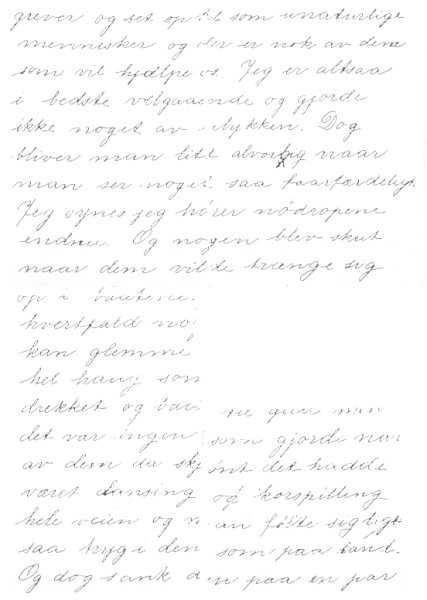 grever og set op til som unaturlige
mennesker og der er nok av dem
som vil hjælpe os. Jeg er altsaa
i bedste velgaaende og gjorde
ikke noget av stykken. Dog
bliver man litt alvorlig naar
man ser noget saa haarfærdeligt.
Jeg synes jeg hører nödropene
endnu. Og nogen blev skut
naar dem vilde trænge sig
op i baatene
hvertfald
kan glemme
hel som
drekket og
det var ingen som gjorde
av dem da skjönt det hadde
været dansing og korspilling
hele veien og man følte sig ligt
saa tryg i den som paa land.
Og dog sank den paa en par